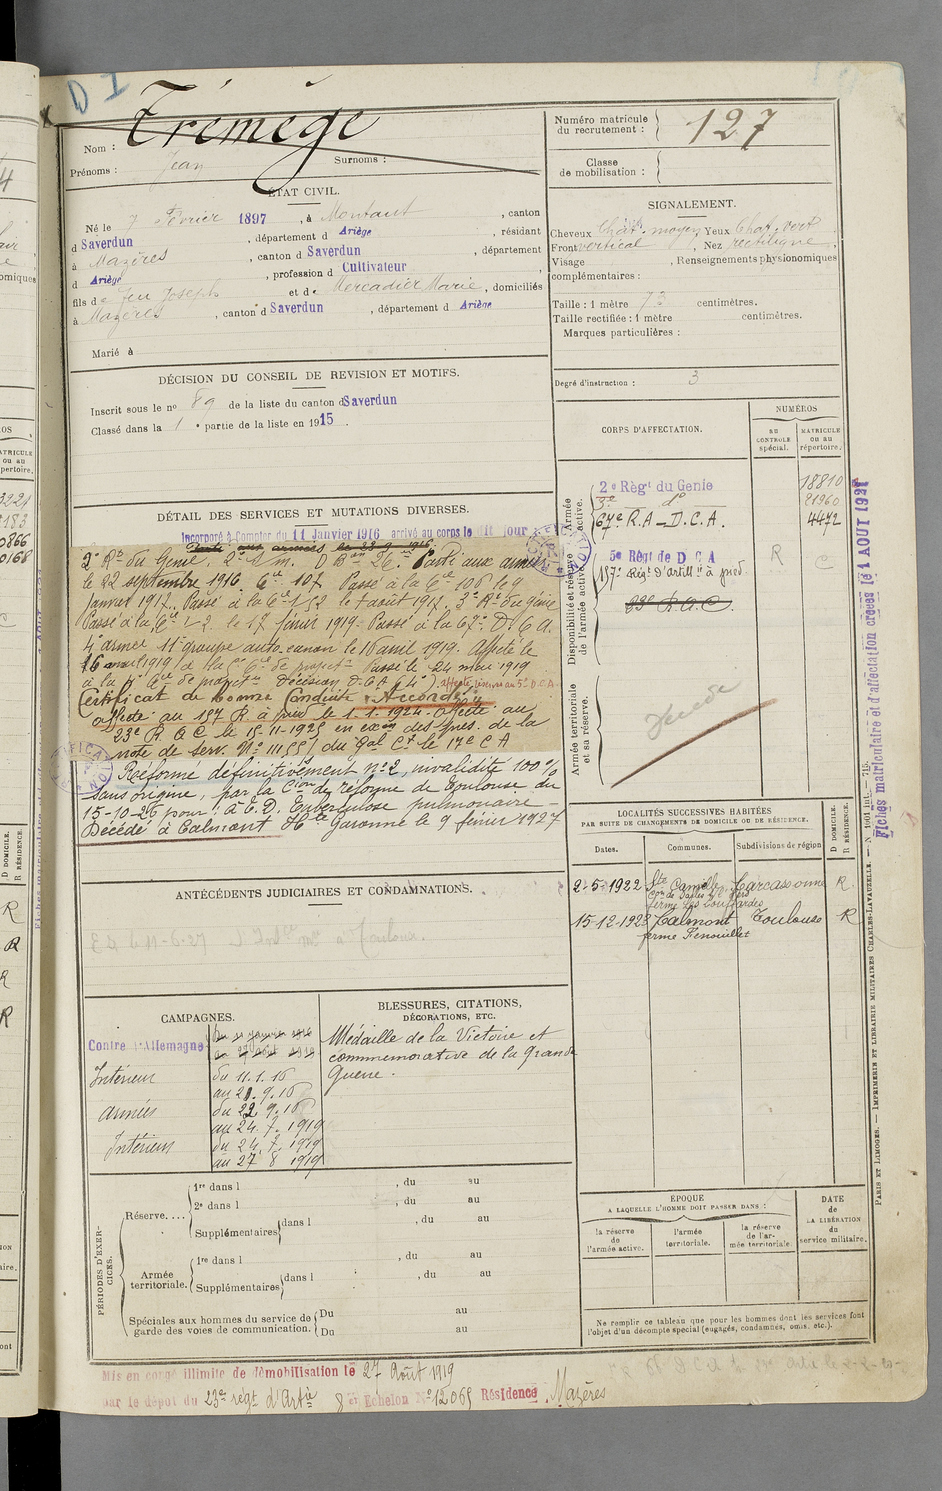 D I
Nom : Trémège
Prénoms : Jean Surnoms :
Numéro matricule
du recrutement : 127
Classe
de mobilisation :
ÉTAT CIVIL.
Né le 7 Février 1897, à Montaut, canton
d Saverdun, département d Ariège, résidant
à Mazères, canton d Saverdun, département
d Ariège, profession d Cultivateur
fils de feu Joseph et de Mercadier Marie, domiciliés
à Mazères, canton d Saverdun, département d Ariège
Marié à
SIGNALEMENT.
Cheveux Chat. moyen Yeux Chat. vert
Front vertical, Nez rectiligne.
Visage, Renseignements physionomiques
complémentaires :
Taille : 1 mètre 73 centimètres.
Taille rectifiée : 1 mètre centimètres.
Marques particulières :
Degré d'instruction : 3
DÉCISION DU CONSEIL DE REVISION ET MOTIFS.
Inscrit sous le no 89 de la liste du canton d Saverdun
Classé dans la 1 e partie de la liste en 1915.
CORPS D'AFFECTATION.
NUMÉROS
au
CONTROLE
spécial.
MATRICULE
ou au
répertoire.
Armée
active.
2e Régt du Genie 18810
3e do 21960
67e R.A-D.C.A. 4472
Disponibilité et réserve
de l'armée active.
5e Régt de D C A R C
157e Régt d'artillie à pied
23e R.A.C.
Armée territoriale
et sa réserve.
Décédé
DÉTAIL DES SERVICES ET MUTATIONS DIVERSES.
Incorporé à Compter du 11 Janvier 1916 arrivé au corps le dit jour
Parti aux armées le 22-9-1916
2e Rt du Génie. 2e S. m. D Bon 26. Parti aux armées
le 22 septembre 1916 Cie 107 Passé à la Cie 106 le 9
janvier 1917. Passé à la Cie 1/52 le 7 août 1917. 3e Rt du génie
Passé à la Cie 1/2 le 17 février 1919. Passé à la 67e D C A.
4e armée 11e groupe auto-canon le 16 avril 1919. Affecté le
16 avril 1919 à la Cie de project. Passé le 24 mai 1919
affecté réserve au 5e D.C.A
Certificat de bonne Conduite "Accordé"
affecté au 157 R. à pied le 1.1.1924. Affecté au
23e R A C le 15-11-1925 en exon des pres. de la
note de serv. No 11155/1 du Gal Ct le 17e C A
Réformé définitivement No 2, invalidité 100%
sans origine, par la Cion de réforme de Toulouse du
15-10-26 pour : à E.D. Tuberculose pulmonaire -
Décédé à Calmont Hte Garonne le 9 février 1927
LOCALITÉS SUCCESSIVES HABITÉES
PAR SUITE DE CHANGEMENTS DE DOMICILE OU DE RÉSIDENCE.
Dates. Communes. Subdivisions de région
D DOMICILE.
R RÉSIDENCE.
2-5-1922 Ste Camelle Carcassonne R
15-12-1923 Calmont Toulouse R
ferme Fenouillet
ANTÉCÉDENTS JUDICIAIRES ET CONDAMNATIONS.
CAMPAGNES.
Contre l'Allemagne
Du 11 janvier 1916
au 27 août 1919
Intérieur du 11.1.16
au 21.9.16
Armées du 22.9.16
au 24.7.1919
Intérieur du 24.7.1919
au 27 8 1919
BLESSURES, CITATIONS,
DÉCORATIONS, ETC.
Médaille de la Victoire et
commemorative de la Grande
Guerre.
PÉRIODES D'EXERCICES.
Réserve....
1re dans l , du au
2e dans l , du au
Supplémentaires dans l , du au
Armée
territoriale.
1re dans l , du au
Supplémentaires dans l , du au
Spéciales aux hommes du service de
garde des voies de communication.
Du au
Du au
ÉPOQUE
A LAQUELLE L'HOMME DOIT PASSER DANS :
la réserve
de
l'armée active.
l'armée
territoriale.
la réserve
de l'ar-
mée territoriale.
DATE
de
LA LIBÉRATION
du
service militaire.
Ne remplir ce tableau que pour les hommes dont les services font
l'objet d'un décompte spécial (engagés, condamnés, omis, etc.).
Mis en congé illimité de démobilisation le 27 Août 1919
par le dépôt du 23e régt d'Artie 8e Echelon No 12065 Résidence Mazères
Fiches matriculaire et d'affectation créées le 1 AOUT 1927
PARIS ET LIMOGES. — IMPRIMERIE ET LIBRAIRIE MILITAIRES CHARLES-LAVAUZELLE.